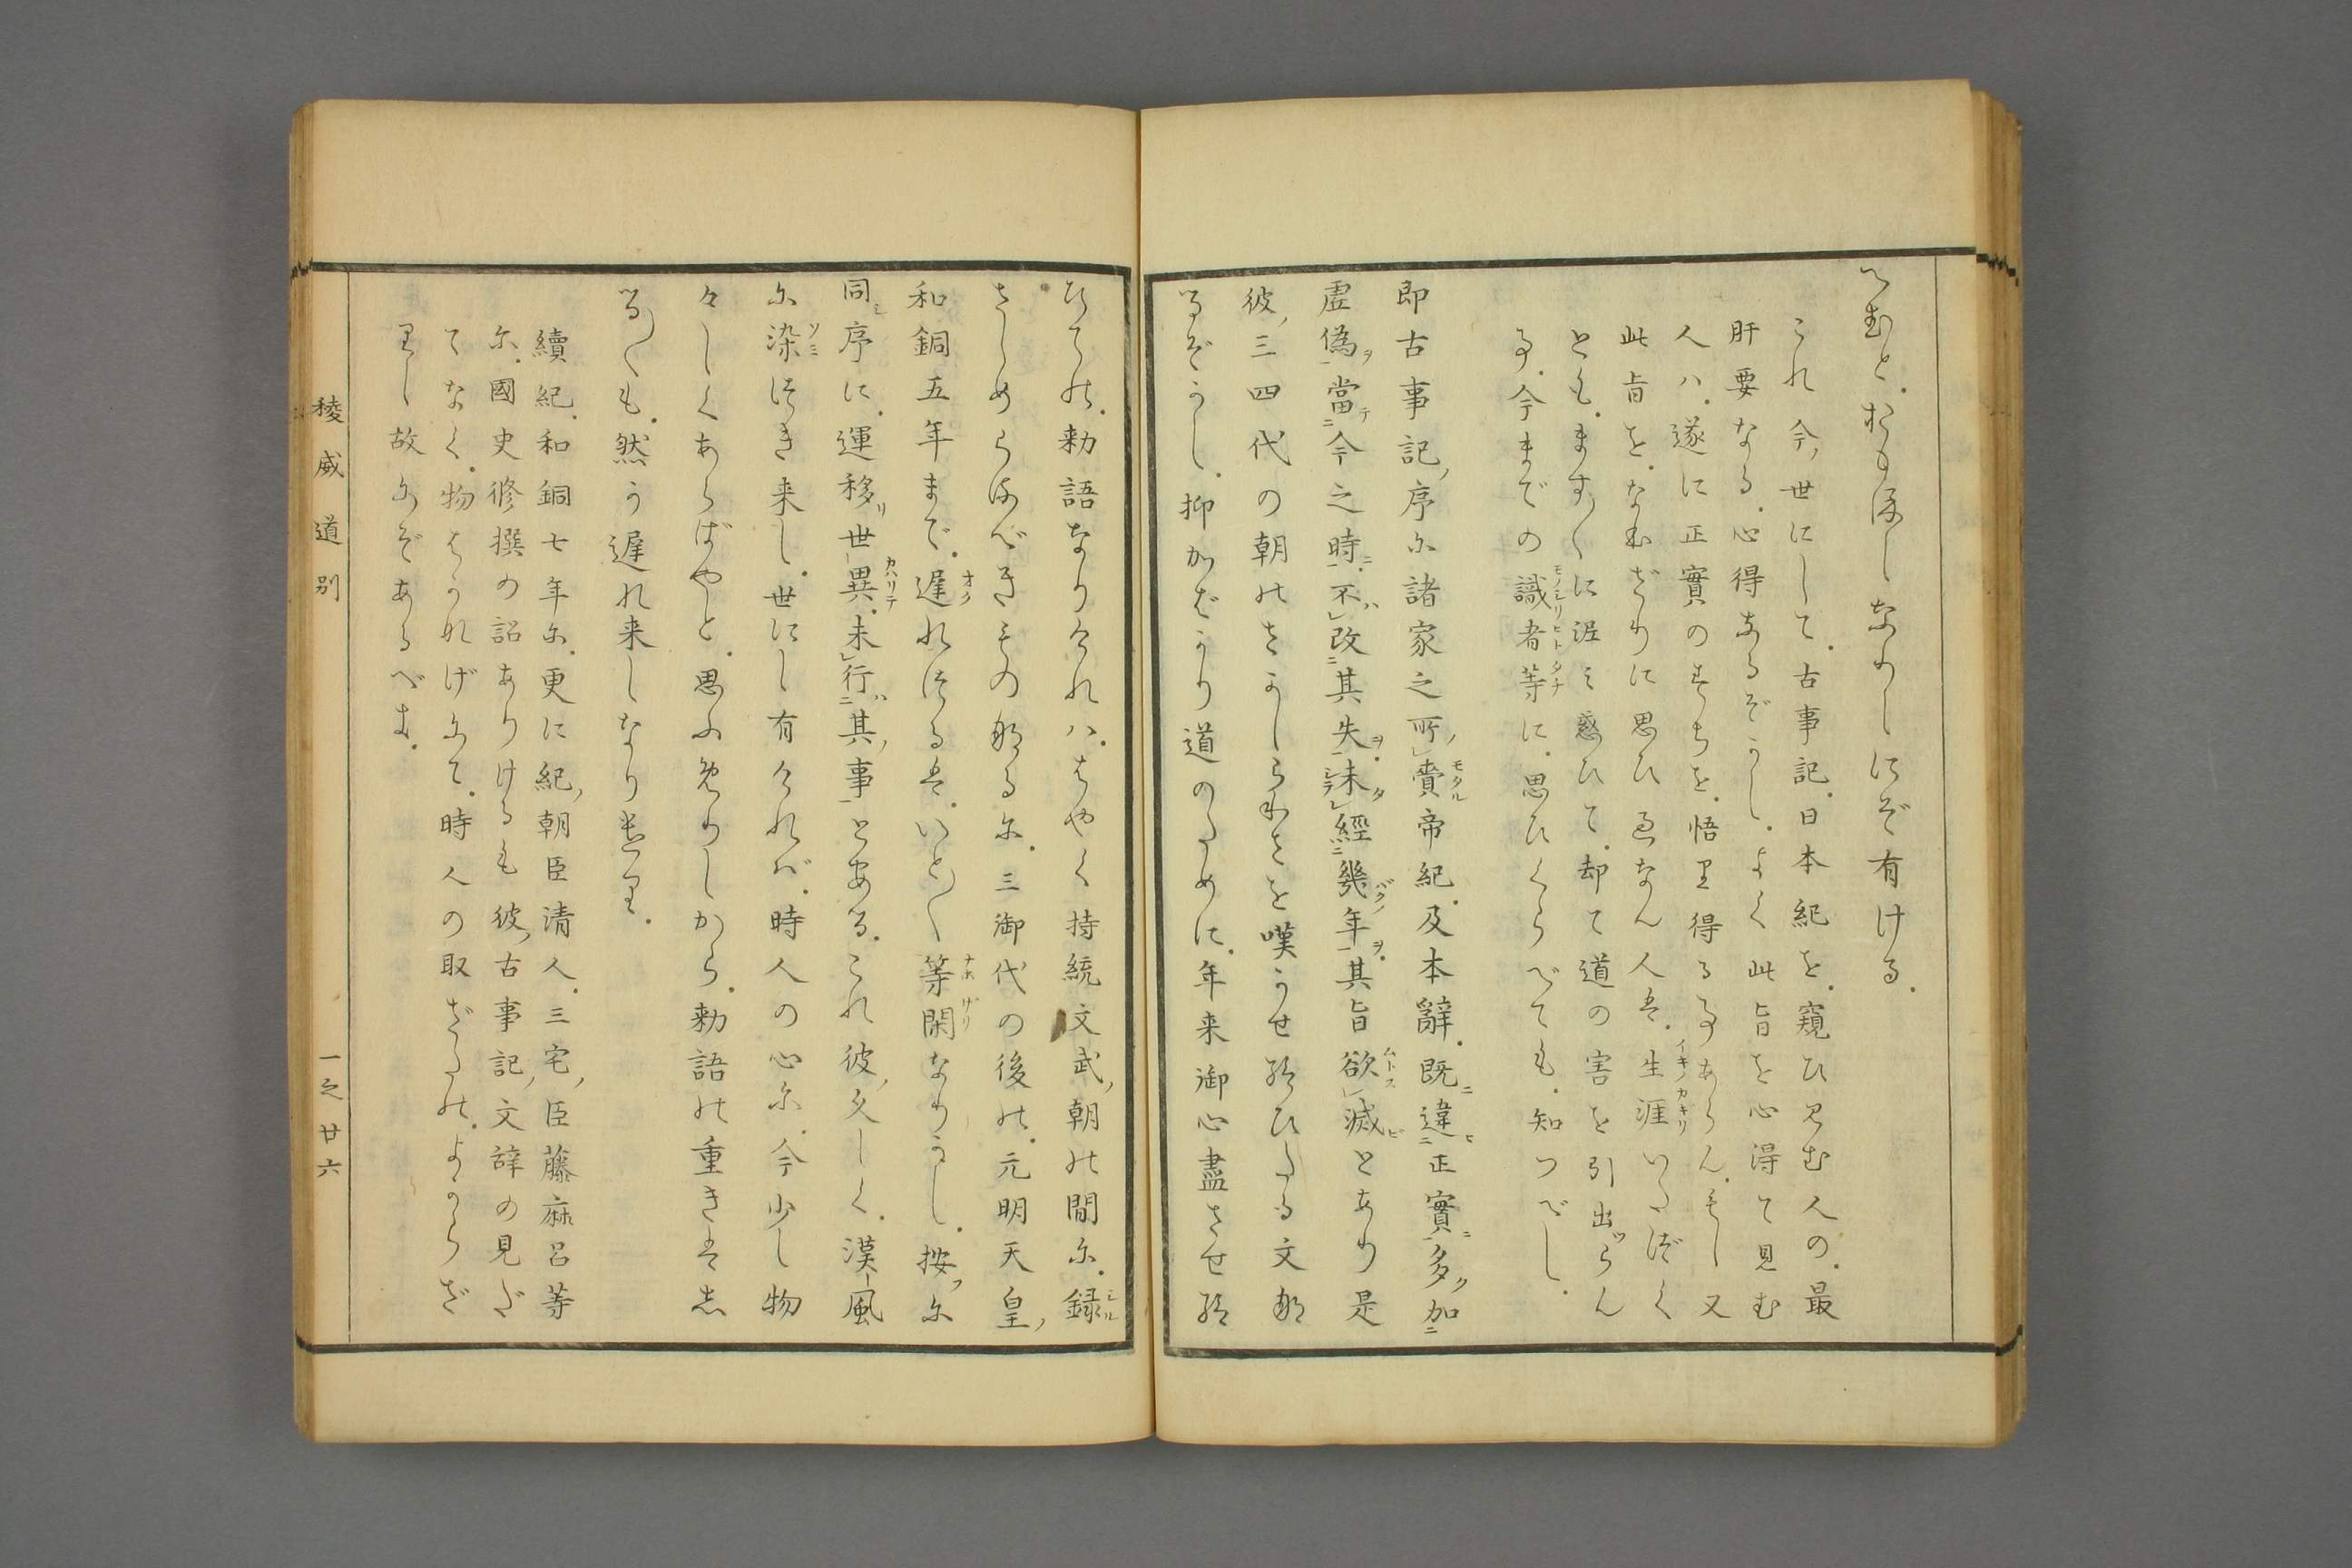 てむと。おもほしなりしにぞ有ける。
これ今ノ世にして。古事記。日本紀を。窺ひ見む人の。最
肝要なる。心得なるぞかし。よく此旨を心得て見む
人ハ。遂に正實のすぢを。悟り得る事あらん。もし又
此旨を。なほざりに思ひ過なん人は。生涯いたづく
とも。ます〳〵に泥ミ惑ひて。却て道の害を引出ツらん
事。今までの識者等に。思ひくらべても。知つべし。
即古事記ノ序に諸家之所賷帝紀。及本辭。既違正實多加
虚偽當今之時。不改其失。未經幾年。其旨欲滅とあり是
彼ノ三四代の朝のさかしらわざを嘆かせ給ひたる文那
るぞかし。抑かばかり道のために。年来御心盡させ給
ひての。勅語なりければ。はやく持統文武ノ朝の間に。録
さしめらるべきもの那るに。三御代の後の。元明天皇ノ
和銅五年まで。遅れつるは。いと〳〵等閑なりかし。按フに
同ミ序に。運移世異。未行其ノ事とある。これ彼ノ久しく。漢風
に染つき来し。世にし有ければ。時人の心に。今少し物
々しくあらばやと。思ふめりしから。勅語の重きは志
る〳〵も。然か遅れ来しなりけり。
續紀。和銅七年に。更に紀ノ朝臣清人。三宅ノ臣藤麻呂等
に。國史修撰の詔ありけるも彼ノ古事記ノ文辞の見だ
てなく。物はかなげにて。時人の取ざたの。よからざ
りし故にぞあるべき。
稜威道別
一之廿六